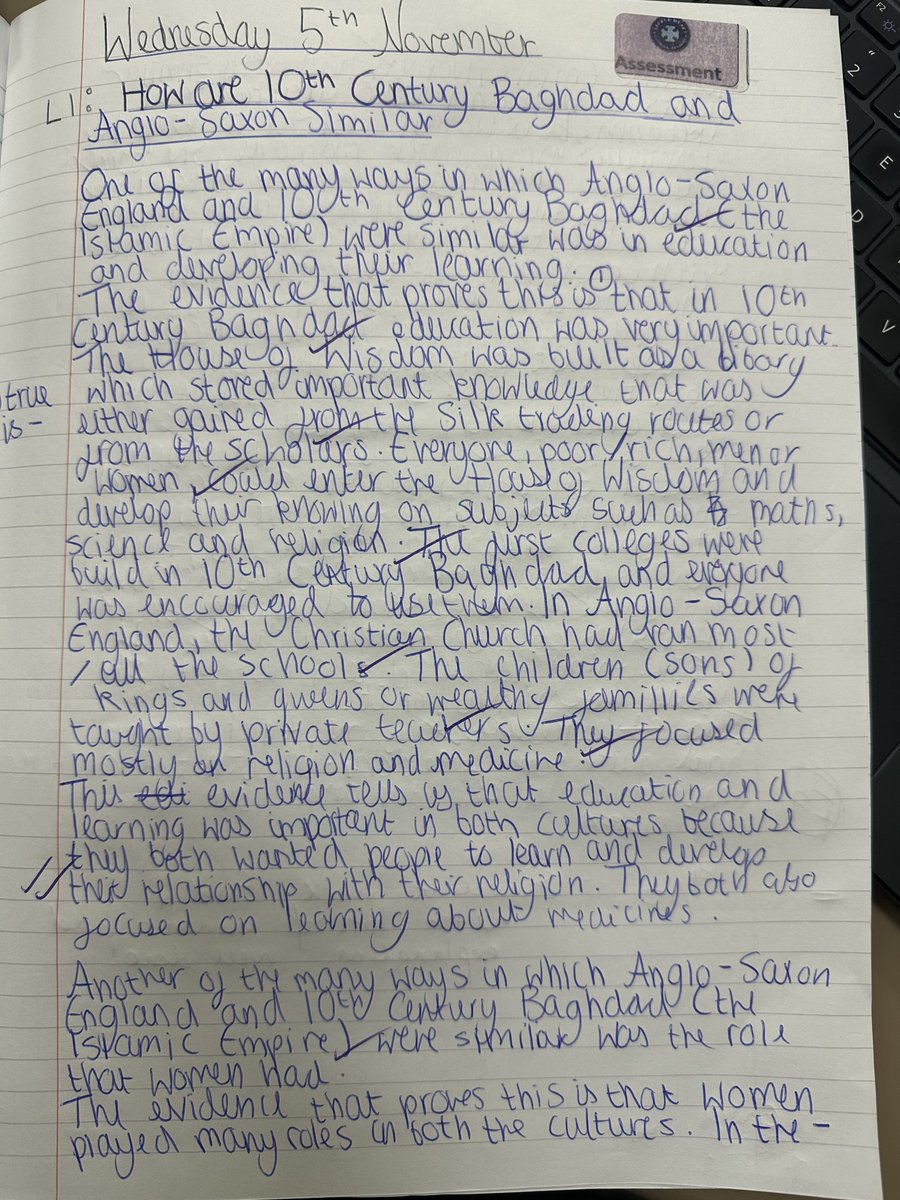 Wednesday 5th November
Assessment
L1: How are 10th Century Baghdad and
Anglo-Saxon Similar
One of the many ways in which Anglo-Saxon
England and 100th Century Baghdad (the
Islamic Empire) were similar was in education
and developing their learning.
The evidence that proves this is that in 10th
Century Baghdad education was very important.
The House of Wisdom was built as a libary
which stored important knowledge that was
true
is-
either gained from the Silk trading routes or
from the scholars. Everyone, poor/rich, men or
women, could enter the House of Wisdom and
develop their knowing on subjects such as maths,
science and religion. The first colleges were
build in 10th Century Baghdad, and everyone
was encouraged to use them. In Anglo-Saxon
England, the Christian Church had ran most
/all the schools. The children (sons) of
kings and queens or wealthy familliies were
taught by private teachers. They focused
mostly on religion and medicine.
This evidence tells us that education and
learning was important in both cultures because
they both wanted people to learn and develop
their relationship with their religion. They both also
focused on learning about medicines.
Another of the many ways in which Anglo-Saxon
England and 10th Century Baghdad (the
Islamic Empire) were similar was the role
that women had.
The evidence that proves this is that women
played many roles in both the cultures. In the-